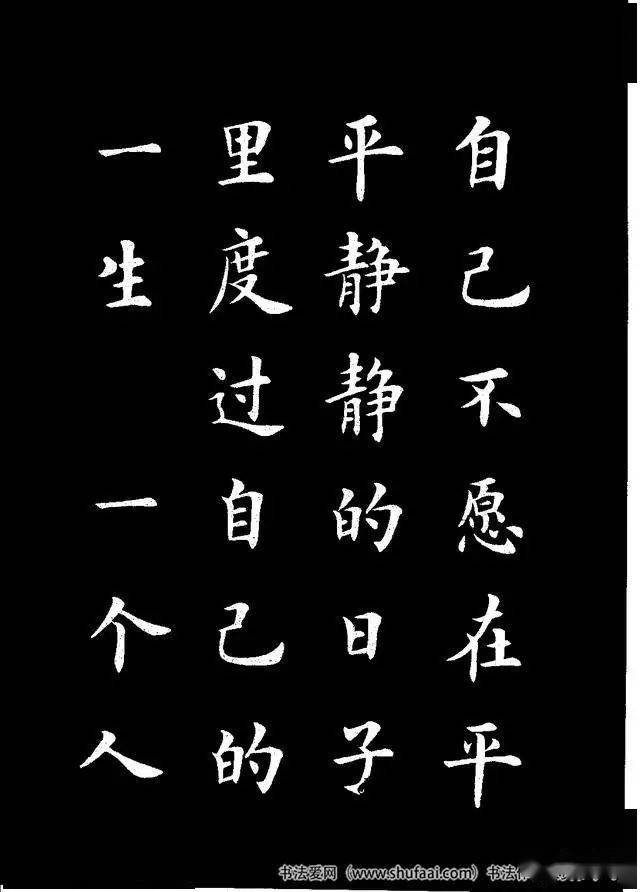 自己不愿在平
平静静的日子
里度过自己的
一生 一个人
书法爱网（www.shufaai.com）书法